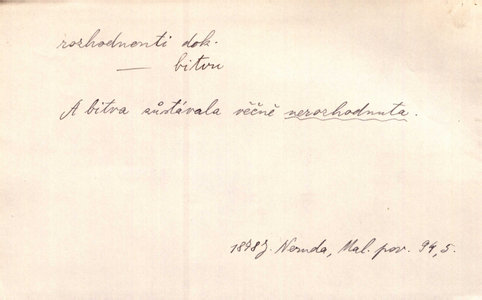 rozhodnouti dok.
— bitvu
A bitva zůstávala věčně nerozhodnuta.
1878 J. Neruda, Mal. pov. 94, 5.